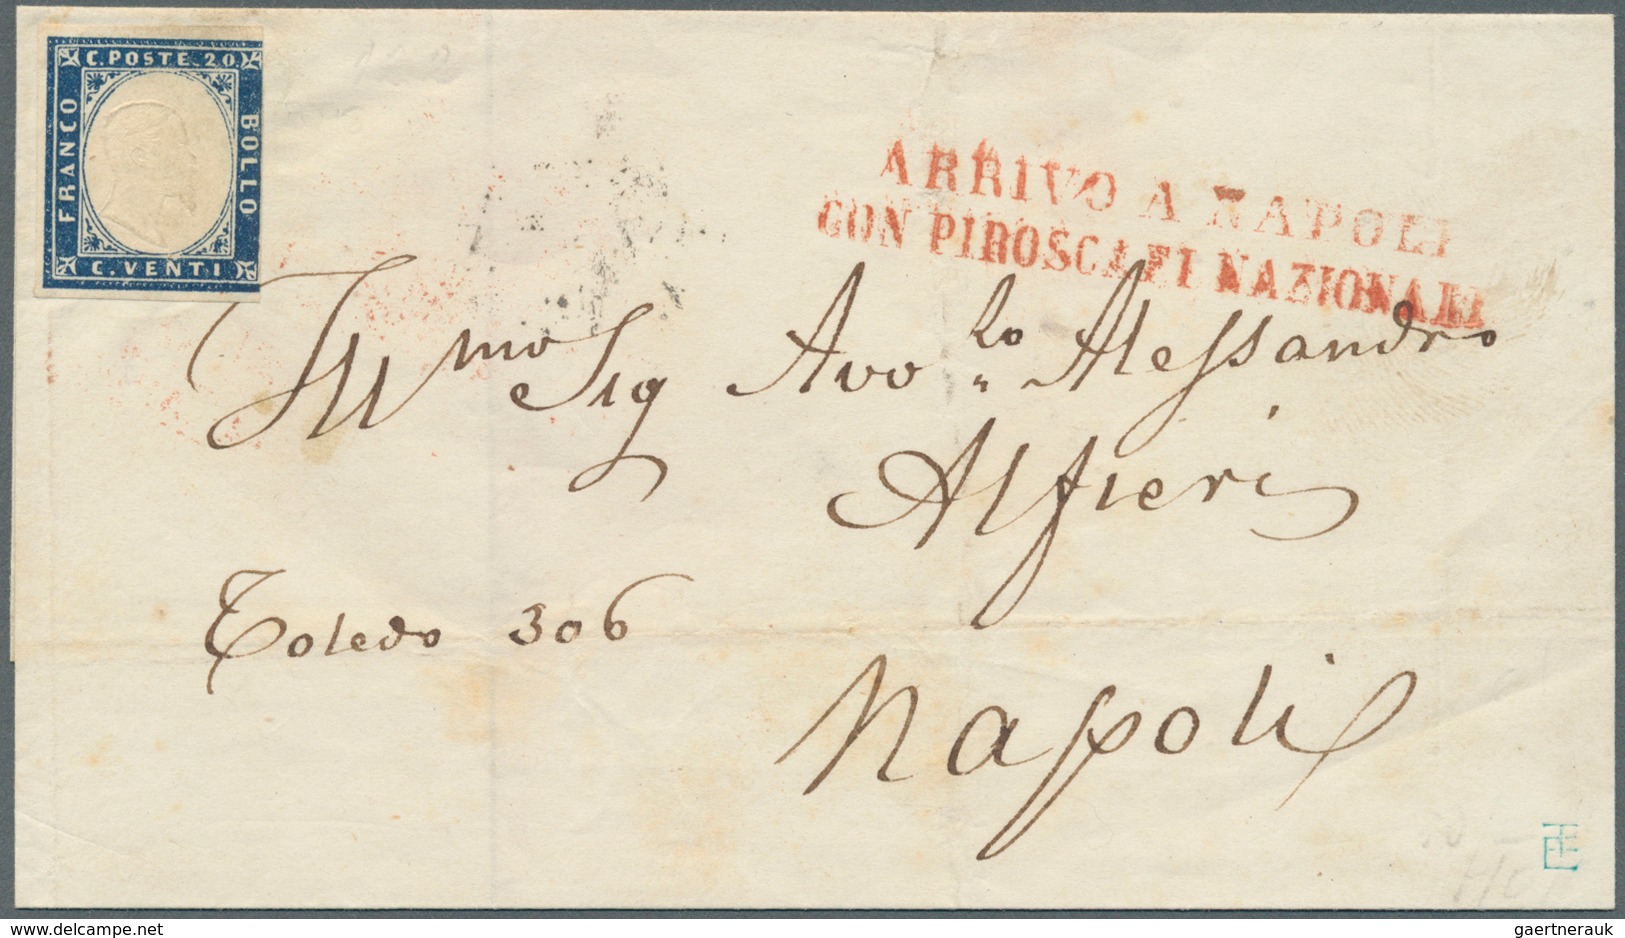 C. POSTE. 20
FRANCO
BOLLO
C. VENTI
ARRIVO A NAPOLI
CON PIROSCAFI NAZIONALI
Ill mo Sig Avo lo Alessandro
Alfieri
Toledo 306
Napoli
delcampe.net
gaertnerauk